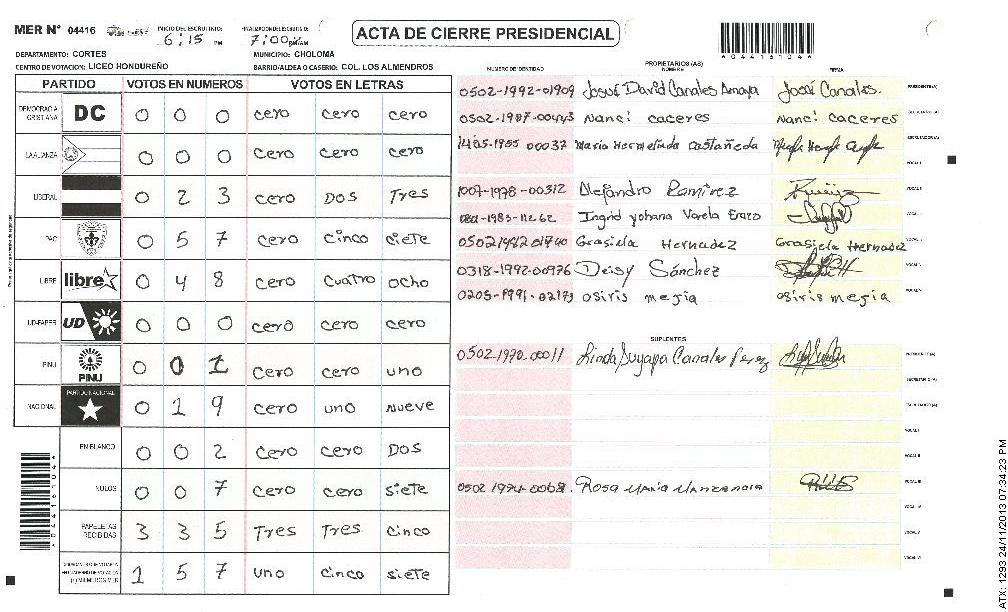 MER N° 04416 INICIO DEL ESCRUTINIO: 6:15 PM FINALIZACION DEL ESCRUTINIO: 7:00 PM/AM
ACTA DE CIERRE PRESIDENCIAL
DEPARTAMENTO: CORTES MUNICIPIO: CHOLOMA
CENTRO DE VOTACION: LICEO HONDUREÑO BARRIO/ALDEA O CASERIO: COL. LOS ALMENDROS
PARTIDO VOTOS EN NUMEROS VOTOS EN LETRAS
DEMOCRACIA CRISTIANA DC 0 0 0 cero cero cero
LA ALIANZA 0 0 0 cero cero cero
LIBERAL 0 2 3 cero Dos Tres
PAC 0 5 7 cero cinco ciete
LIBRE libre 0 4 8 cero cuatro ocho
UD-FAPER UD 0 0 0 cero cero cero
PINU PINU 0 0 1 cero cero uno
NACIONAL PARTIDO NACIONAL 0 1 9 cero uno nueve
EN BLANCO 0 0 2 cero cero DOS
NULOS 0 0 7 cero cero siete
PAPELETAS RECIBIDAS 3 3 5 Tres Tres cinco
1 5 7 uno cinco siete
NUMERO DE IDENTIDAD PROPIETARIOS (AS) NOMBRE FIRMA
0502-1992-01909 Josué David Canales Amaya Josué Canales. PRESIDENTE(A)
0502-1987-00443 Nanci caceres Nanci caceres
1405-1955 00037 Maria Hermelinda castañeda
1007-1978-00312 Alejandro Ramirez
1983-11262 Ingrid yohana Varela Erazo
0502 1992 01740 Grasiela Hernadez Grasiela Hernadez
0318-1992-00976 Deisy Sánchez
0205-1991-02179 osiris mejia osiris mejia
SUPLENTES
0502-1970-00011 Linda Suyapa Canales Perez PRESIDENTE(A)
SECRETARIO (A)
ESCRUTADOR (A)
VOCAL I
VOCAL II
0502 1994-0068. Rosa Maria Manzanares VOCAL III
VOCAL IV
VOCAL V
VOCAL VI
A044161046
ATX: 1293 24/11/2013 07:34:23 PM